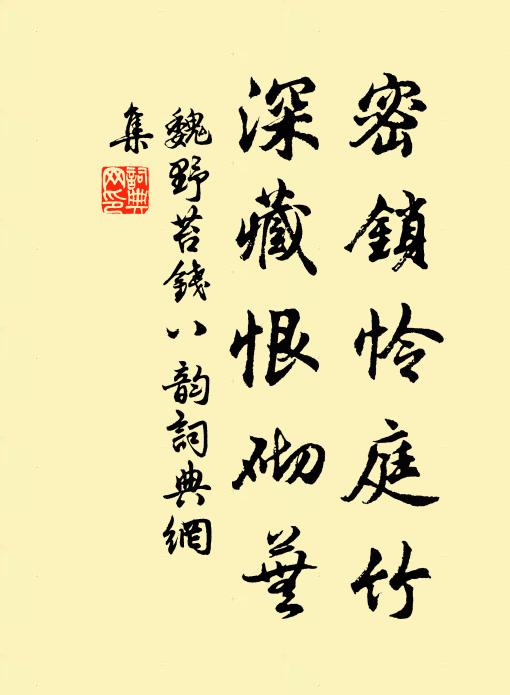 密鎖怜庭竹
深藏恨砌蕪
魏野苔錢八韵詞典網
集
詞典網印